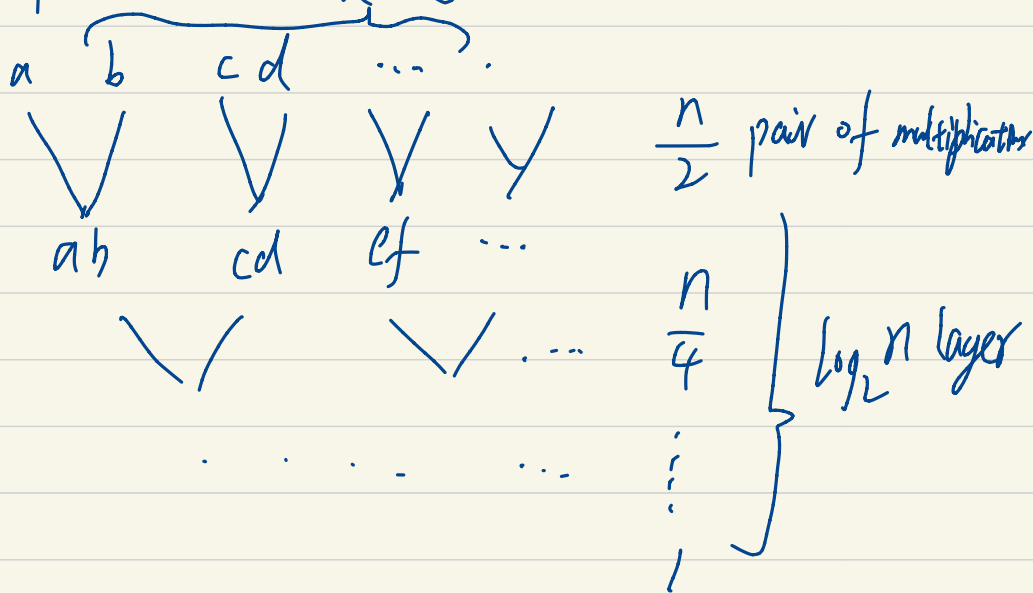 a b c d ... .
n/2 pair of multiplication
ab cd ef ...
n/4
log₂ n layer
1